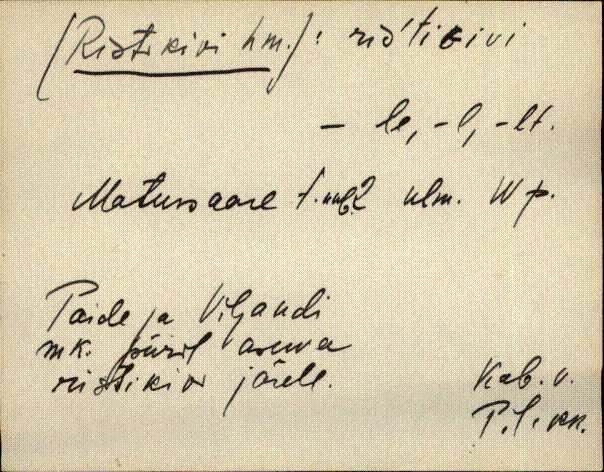 [Ristikivi hm.]: ris'tikivi
– le, -l, -lt.
Matussaare ulm. Wp.
Paide ja Viljandi
mk. piiril asuva
ristikivi järele.
Kab. v.
P.l. kk.